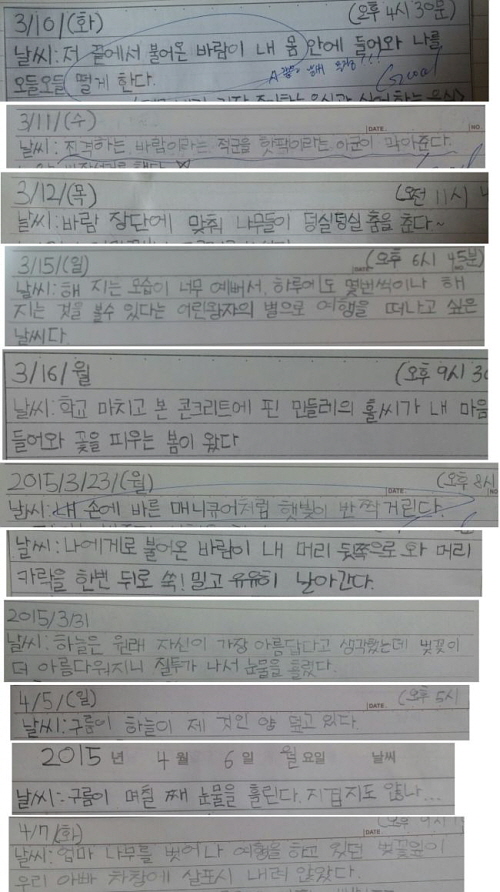 3/10/(화) (오후 4시 30분)
날씨: 저 끝에서 불어온 바람이 내 몸 안에 들어와 나를
오들오들 떨게 한다.
Good
3/11/(수)
DATE. NO.
날씨: 진격하는 바람이라는 적군을 핫팩이라는 아군이 막아준다.
3/12/(목) (오전 11시
날씨: 바람 장단에 맞춰 나무들이 덩실덩실 춤을 춘다~
3/15/(일) (오후 6시 45분)
DATE
날씨: 해 지는 모습이 너무 예뻐서, 하루에도 몇번씩이나 해
지는 것을 볼수 있다는 어린왕자의 별으로 여행을 떠나고 싶은
날씨다.
3/16/월 (오후 9시 30
날씨: 학교 마치고 본 콘크리트에 핀 민들레의 홀씨가 내 마음
들어와 꽃을 피우는 봄이 왔다
2015/3/23/(월) (오후 8시
DATE
날씨: 내 손에 바른 매니큐어처럼 햇빛이 반짝거린다.
날씨: 나에게로 불어온 바람이 내 머리 뒷쪽으로 와 머리
카락을 한번 뒤로 쓱! 밀고 유유히 날아간다.
2015/3/31
날씨: 하늘은 원래 자신이 가장 아름답다고 생각했는데 벚꽃이
더 아름다워지니 질투가 나서 눈물을 흘렸다.
4/5/(일) (오후 5시
DATE.
날씨: 구름이 하늘이 제 것인 양 덮고 있다.
2015 년 4 월 6 일 월요일 날씨
날씨: 구름이 며칠 째 눈물을 흘린다. 지겹지도 않나...
4/7/(화)
DATE
날씨: 엄마 나무를 벗어나 여행을 하고 있던 벚꽃잎이
우리 아빠 차창에 살포시 내려 앉았다.